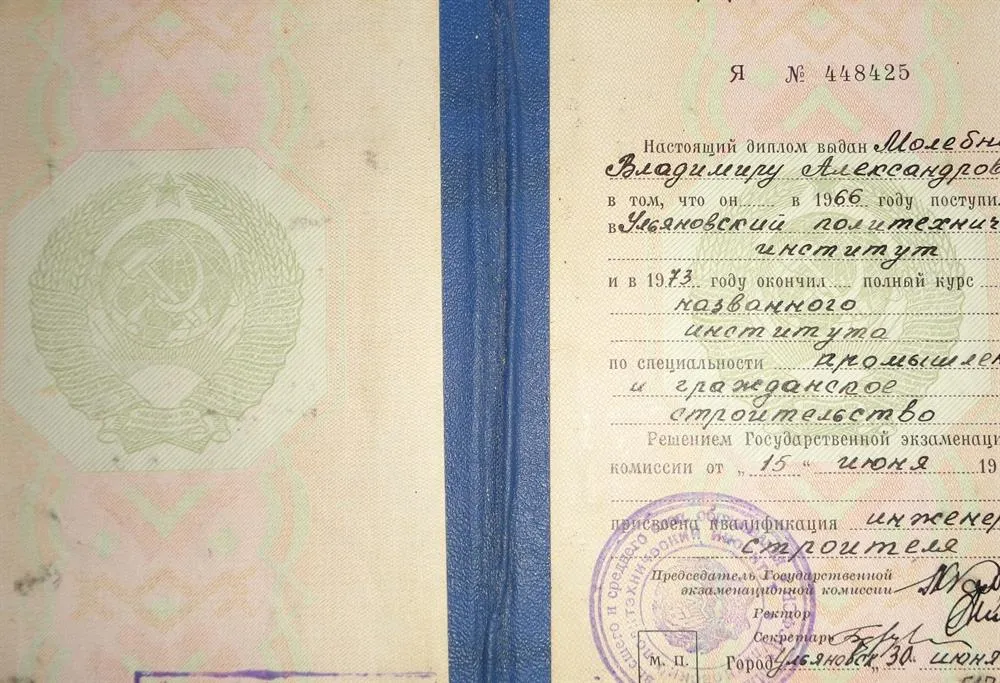 Я № 448425
Настоящий диплом выдан Молебн
Владимиру Александров
в том, что он в 1966 году поступи
в Ульяновский политехнич
институт
и в 1973 году окончил полный курс
названного
института
по специальности промышлен
и гражданское
строительство
Решением Государственной экзаменаци
комиссии от „ 15 “ июня 19
присвоена квалификация инжене
строителя
Председатель Государственной
экзаменационной комиссии
Ректор
Секретарь
М. П. Город Ульяновск, 30 июня